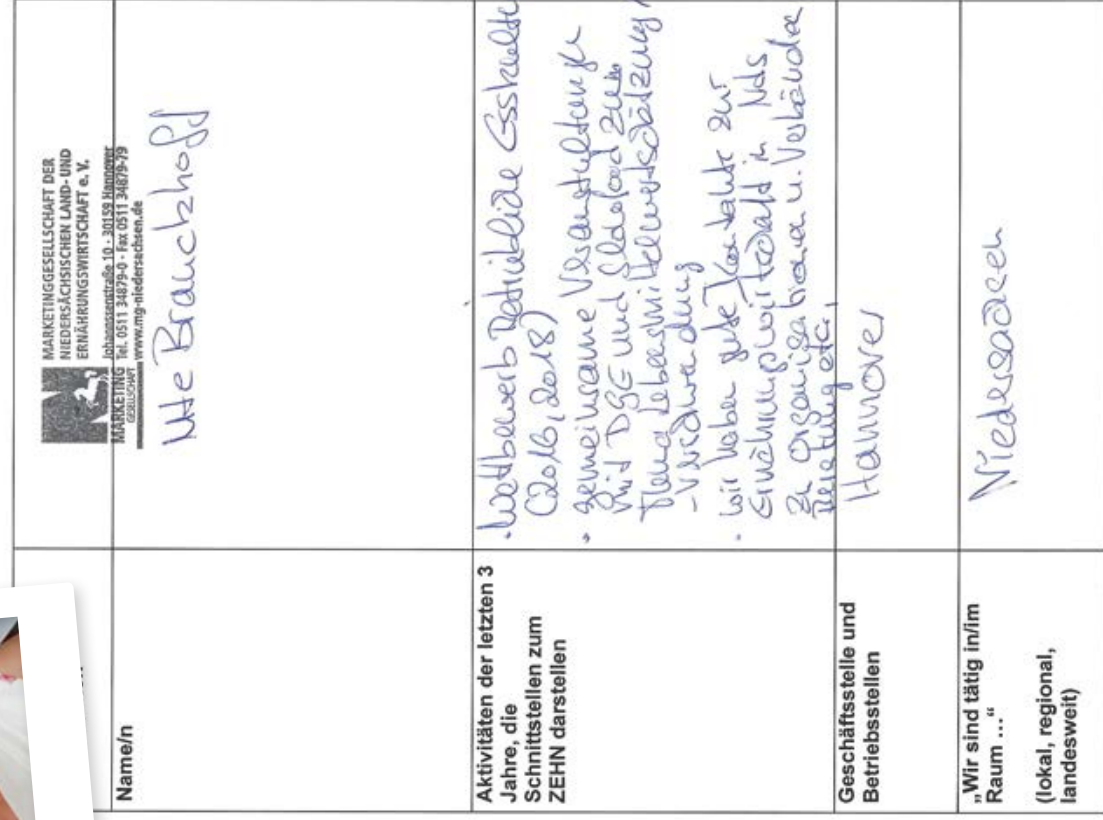 MARKETINGGESELLSCHAFT DER
NIEDERSÄCHSISCHEN LAND- UND
ERNÄHRUNGSWIRTSCHAFT e. V.
Johannssenstraße 10 · 30159 Hannover
MARKETING Tel. 0511 34879-0 · Fax 0511 34879-79
GESELLSCHAFT www.mg-niedersachsen.de
Name/n
Brauckhoff
Aktivitäten der letzten 3
Jahre, die
Schnittstellen zum
ZEHN darstellen
· Wettbewerb Betriebliche Esskultu
(2016, 2018)
· gemeinsame Veranstaltungen
mit DGE und Slowfood zum
Thema Lebensmittelwertschätzung/
-verschwendung
· wir haben gute Kontakte zur
Ernährungswirtschaft in Nds
zu Organisationen u. Verbänden
Beratung etc.
Geschäftsstelle und
Betriebsstellen
Hannover
„Wir sind tätig in/im
Raum ...“
(lokal, regional,
landesweit)
Niedersachsen